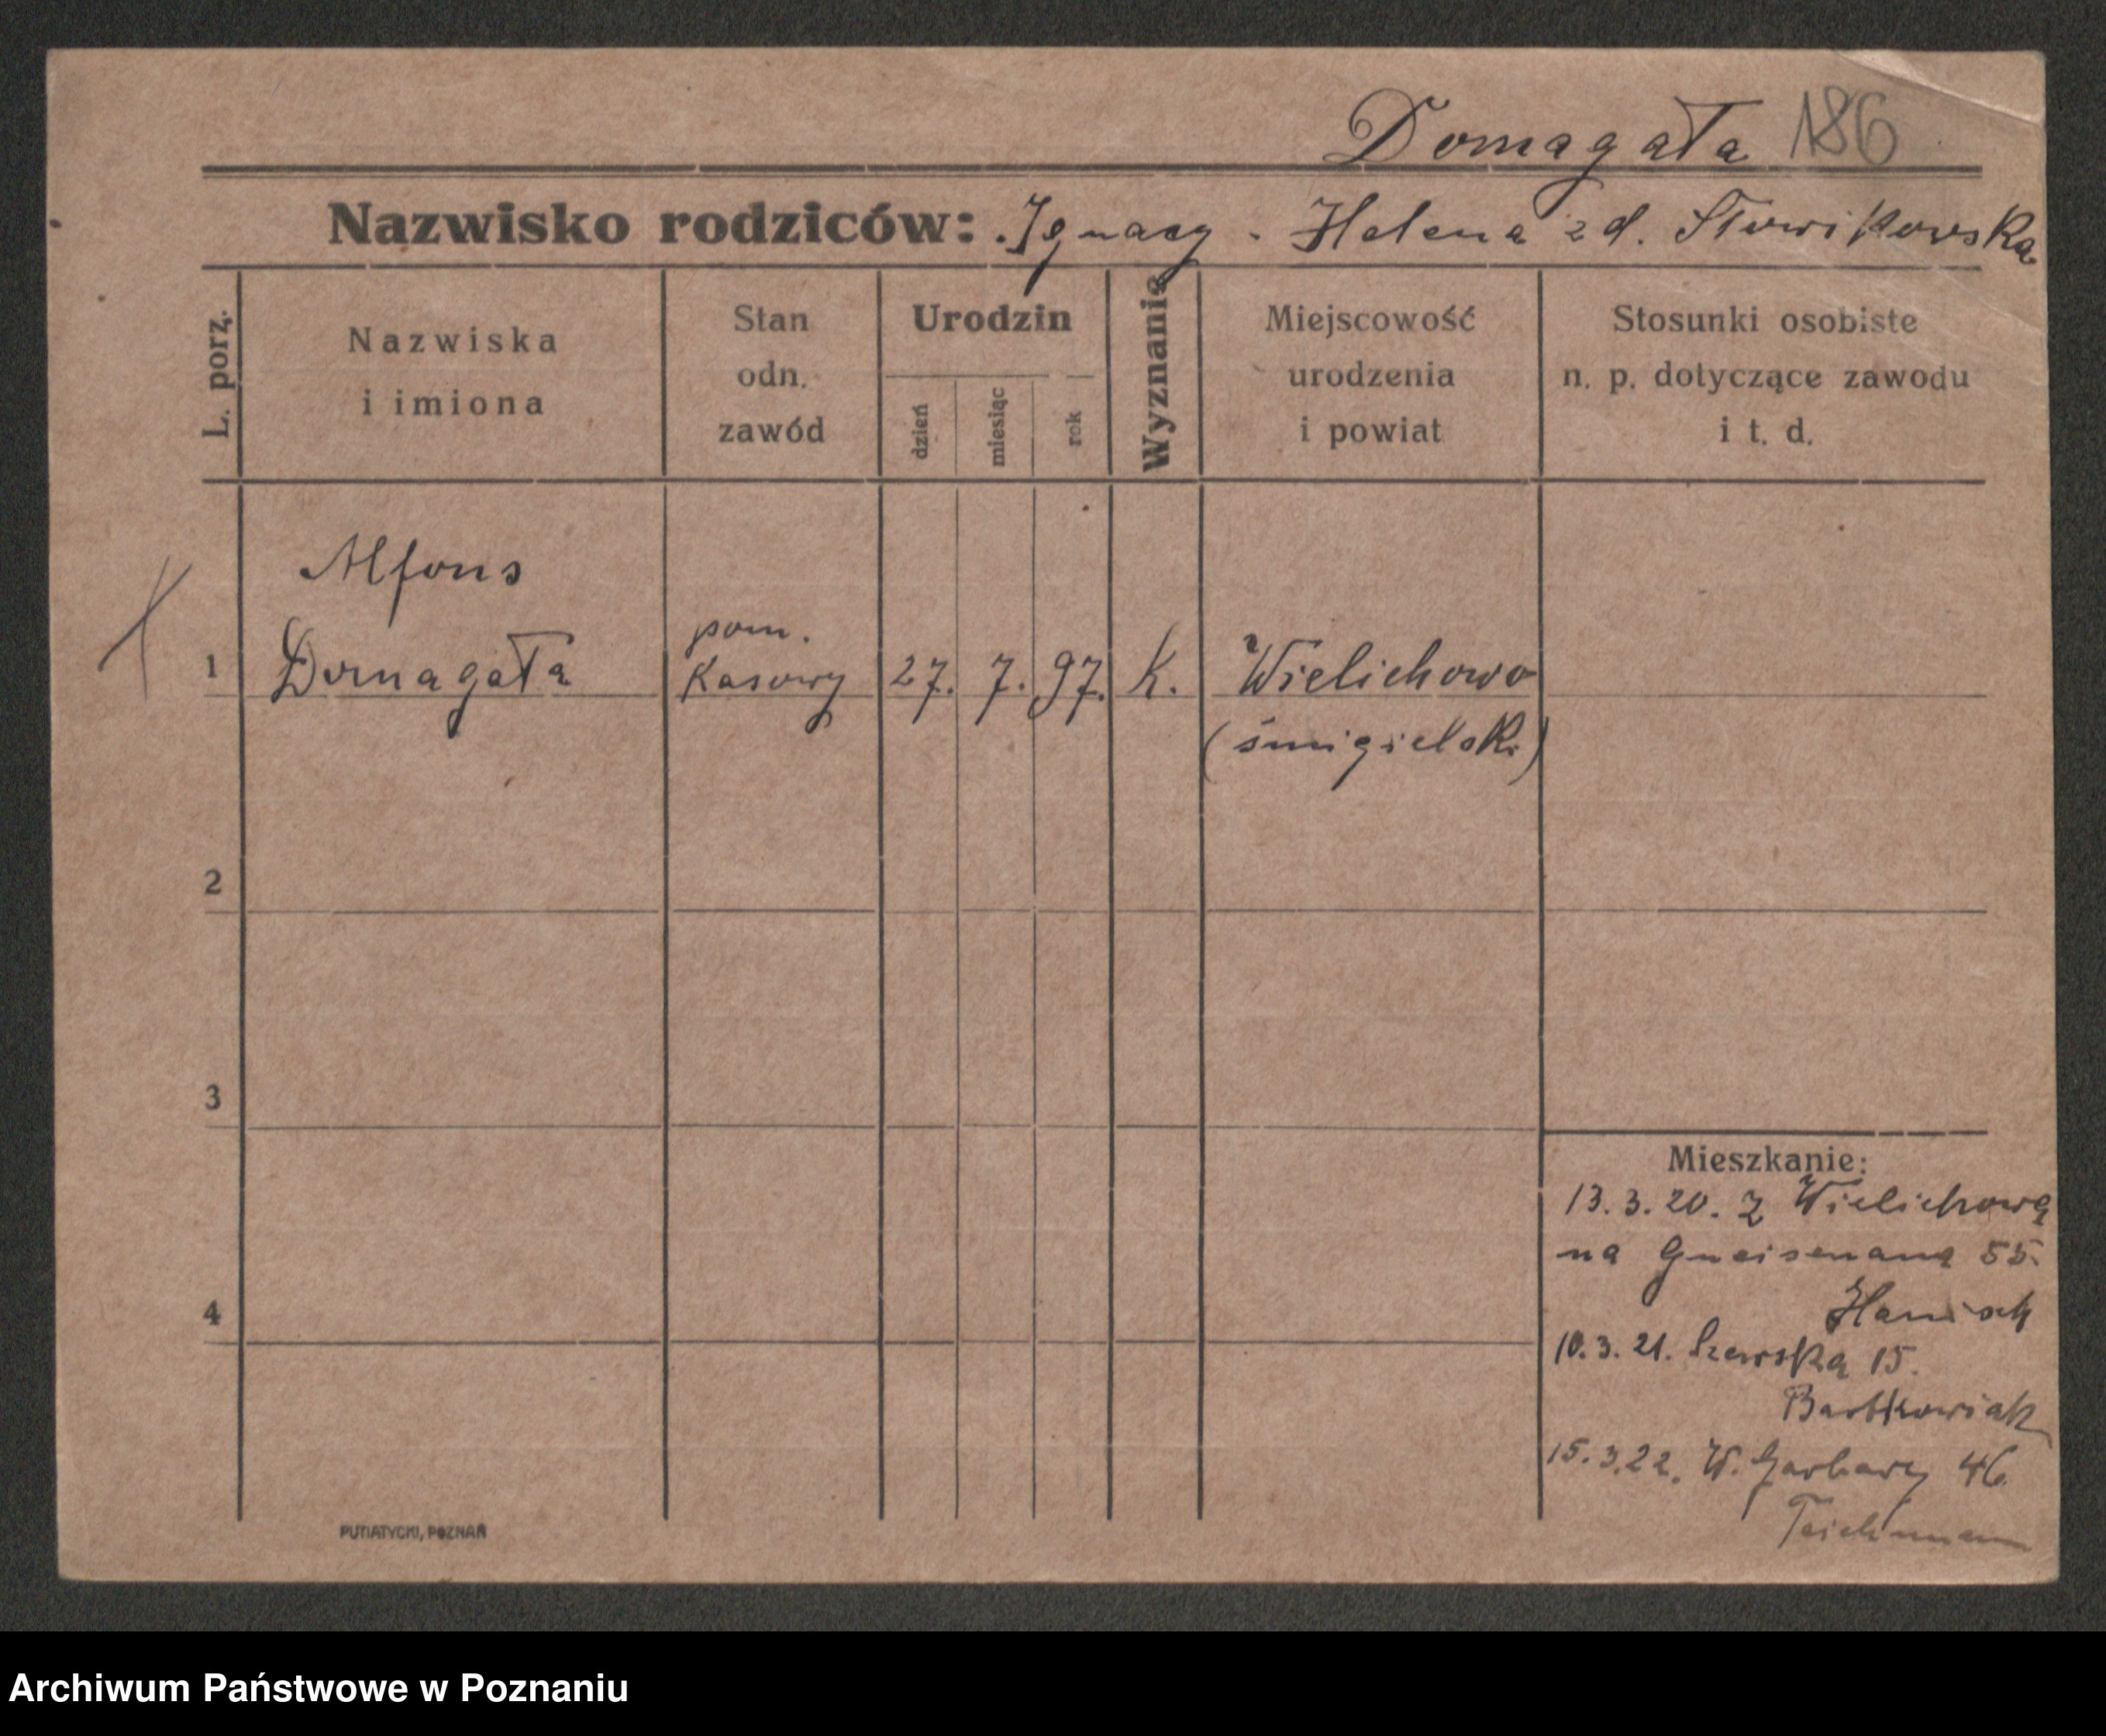 Domagała 186
Nazwisko rodziców: Ignacy - Helena zd. Słowikowska
L. porz.
Nazwiska
i imiona
Stan
odn.
zawód
Urodzin
dzień
miesiąc
rok
Wyznanie
Miejscowość
urodzenia
i powiat
Stosunki osobiste
n. p. dotyczące zawodu
i t. d.
Alfons
pom.
1 Domagała Kasowy 27. 7. 97. K. Wielichowo
(śmigielski)
2
3
4
Mieszkanie:
13.3.20. z Wielichowa
na Gneisenaua 55.
Hanisch
10.3.21. Szewska 15.
Bartkowiak
15.3.22. W. Garbary 46.
Teichmann
PUTIATYCKI, POZNAŃ
Archiwum Państwowe w Poznaniu